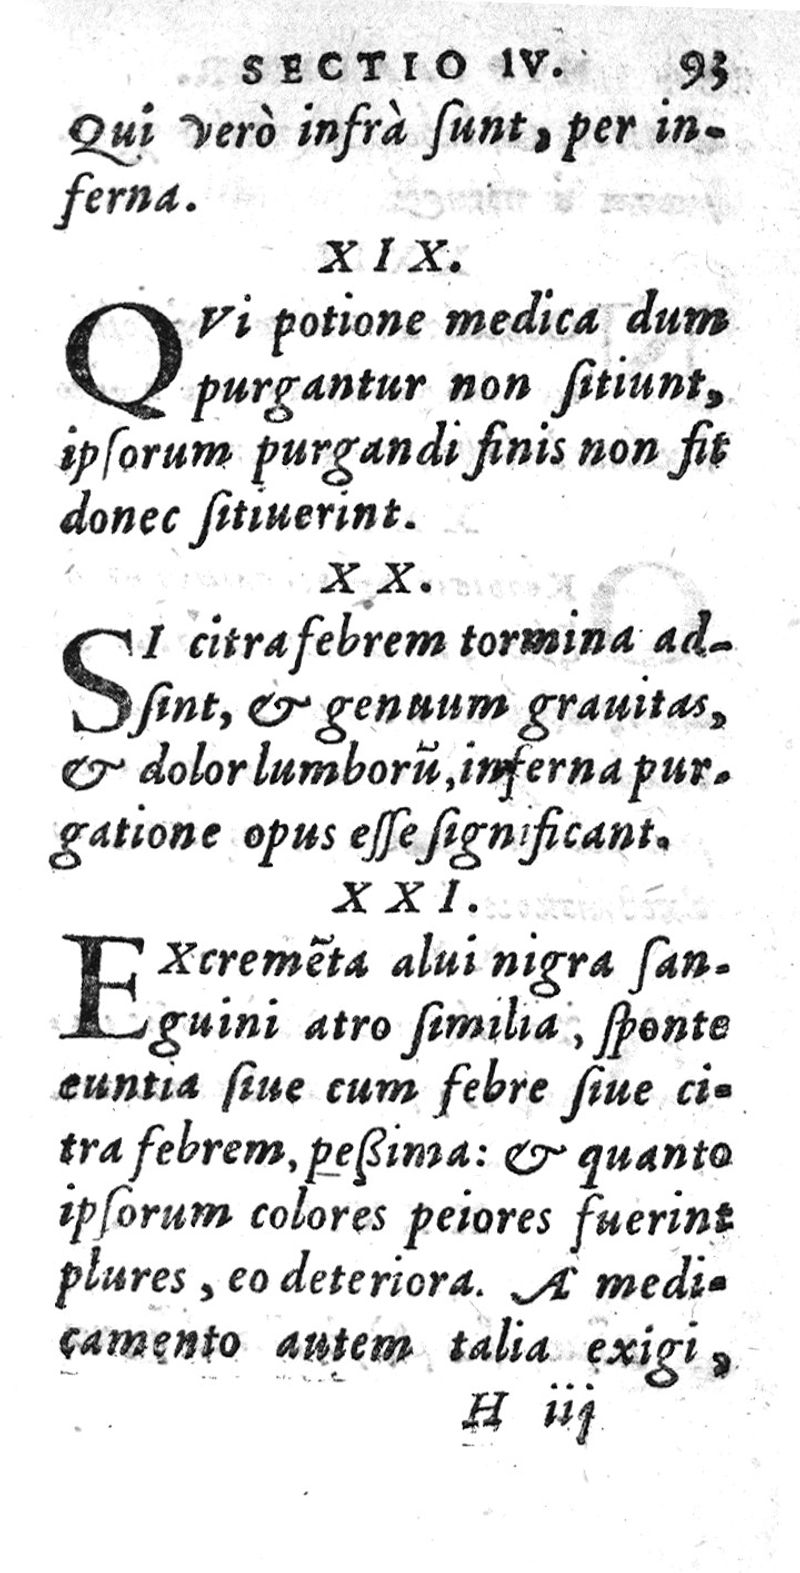 SECTIO IV. 93
Qui verò infrà ſunt, per in-
ferna.
XIX.
QVi potione medica dum
purgantur non ſitiunt,
ipſorum purgandi finis non fit
donec ſitiuerint.
XX.
SI citra febrem tormina ad-
ſint, & genuum grauitas,
& dolor lumborũ, inferna pur-
gatione opus eſſe ſignificant.
XXI.
EXcremẽta alui nigra ſan-
guini atro ſimilia, ſponte
euntia ſiue cum febre ſiue ci-
tra febrem, peßima: & quanto
ipſorum colores peiores fuerint
plures, eo deteriora. A medi-
camento autem talia exigi,
H iij